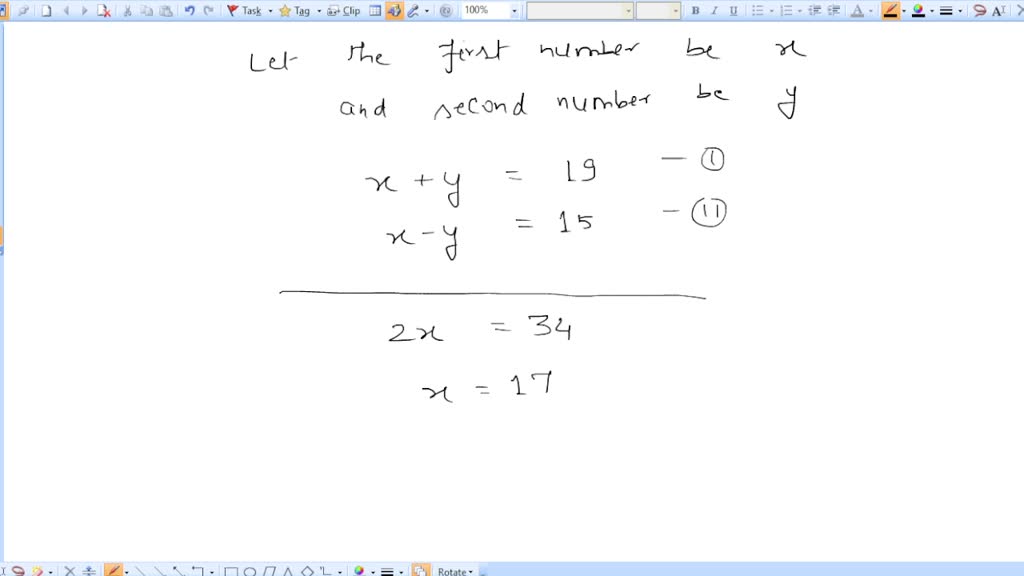 Task Tag Clip 100% B I U A A
Let the first number be x
and second number be y
x + y = 19 — (I)
x - y = 15 — (II)
2x = 34
x = 17
Rotate